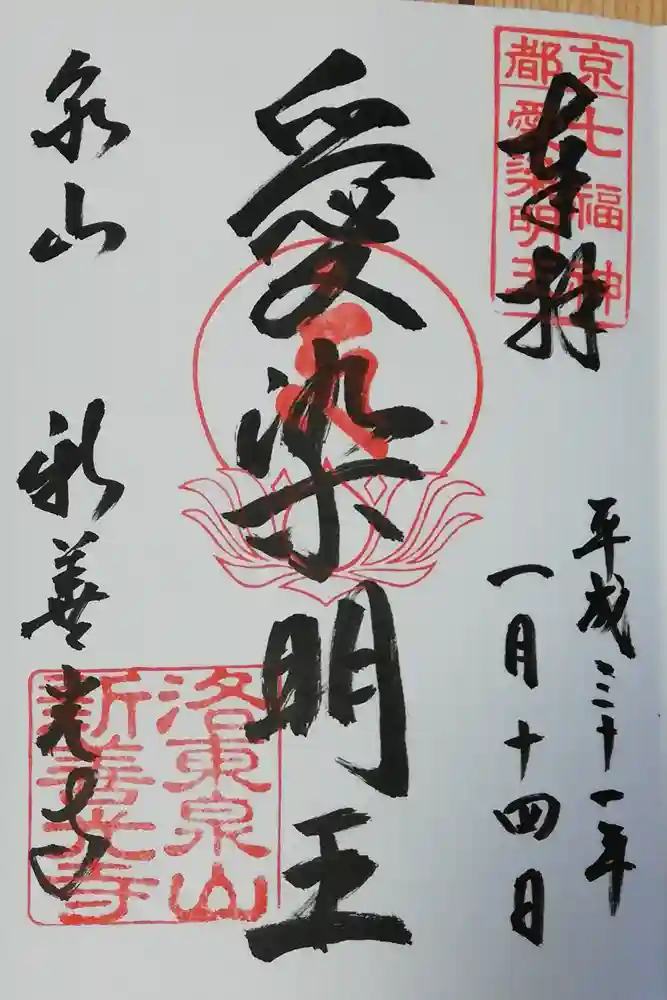 奉拝
京七福神
都愛染明王
平成三十一年
一月十四日
愛染明王
泉山　新善光寺
洛東泉山
新善光寺